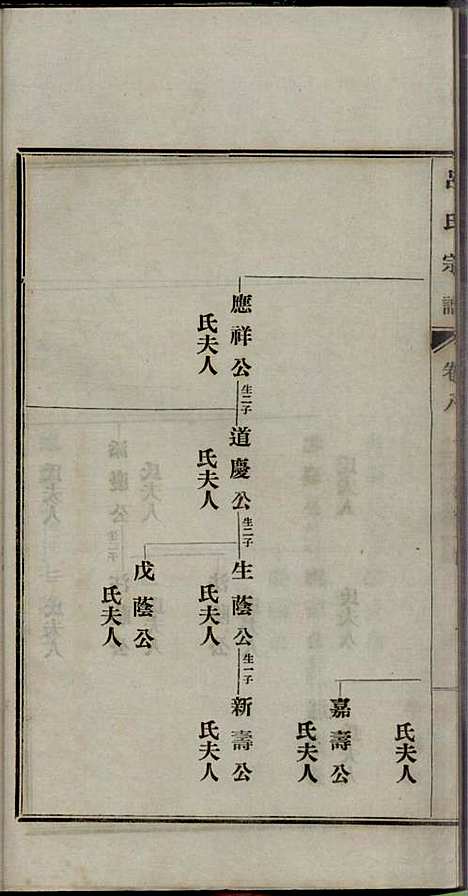 呂氏宗譜
卷八
氏夫人
嘉壽公
氏夫人
應祥公
生二子
道慶公
生二子
生蔭公
生一子
新壽公
氏夫人
氏夫人
氏夫人
氏夫人
戊蔭公
氏夫人